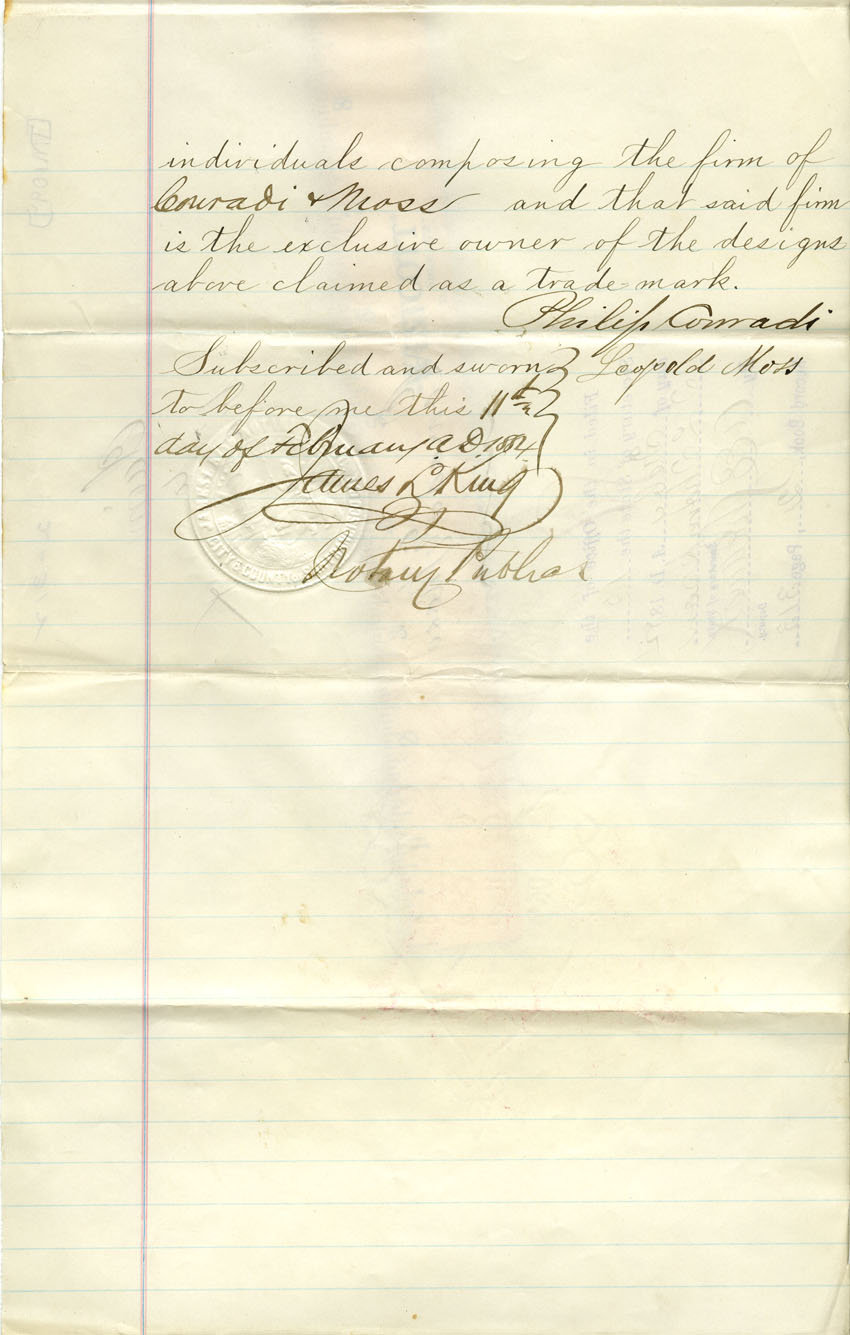 individuals composing the firm of
Conradi & Moss and that said firm
is the exclusive owner of the designs
above claimed as a trade-mark.
Philip Conradi
Subscribed and sworn Leopold Moss
to before me this 11th
day of February A D
James L King
Notary Public